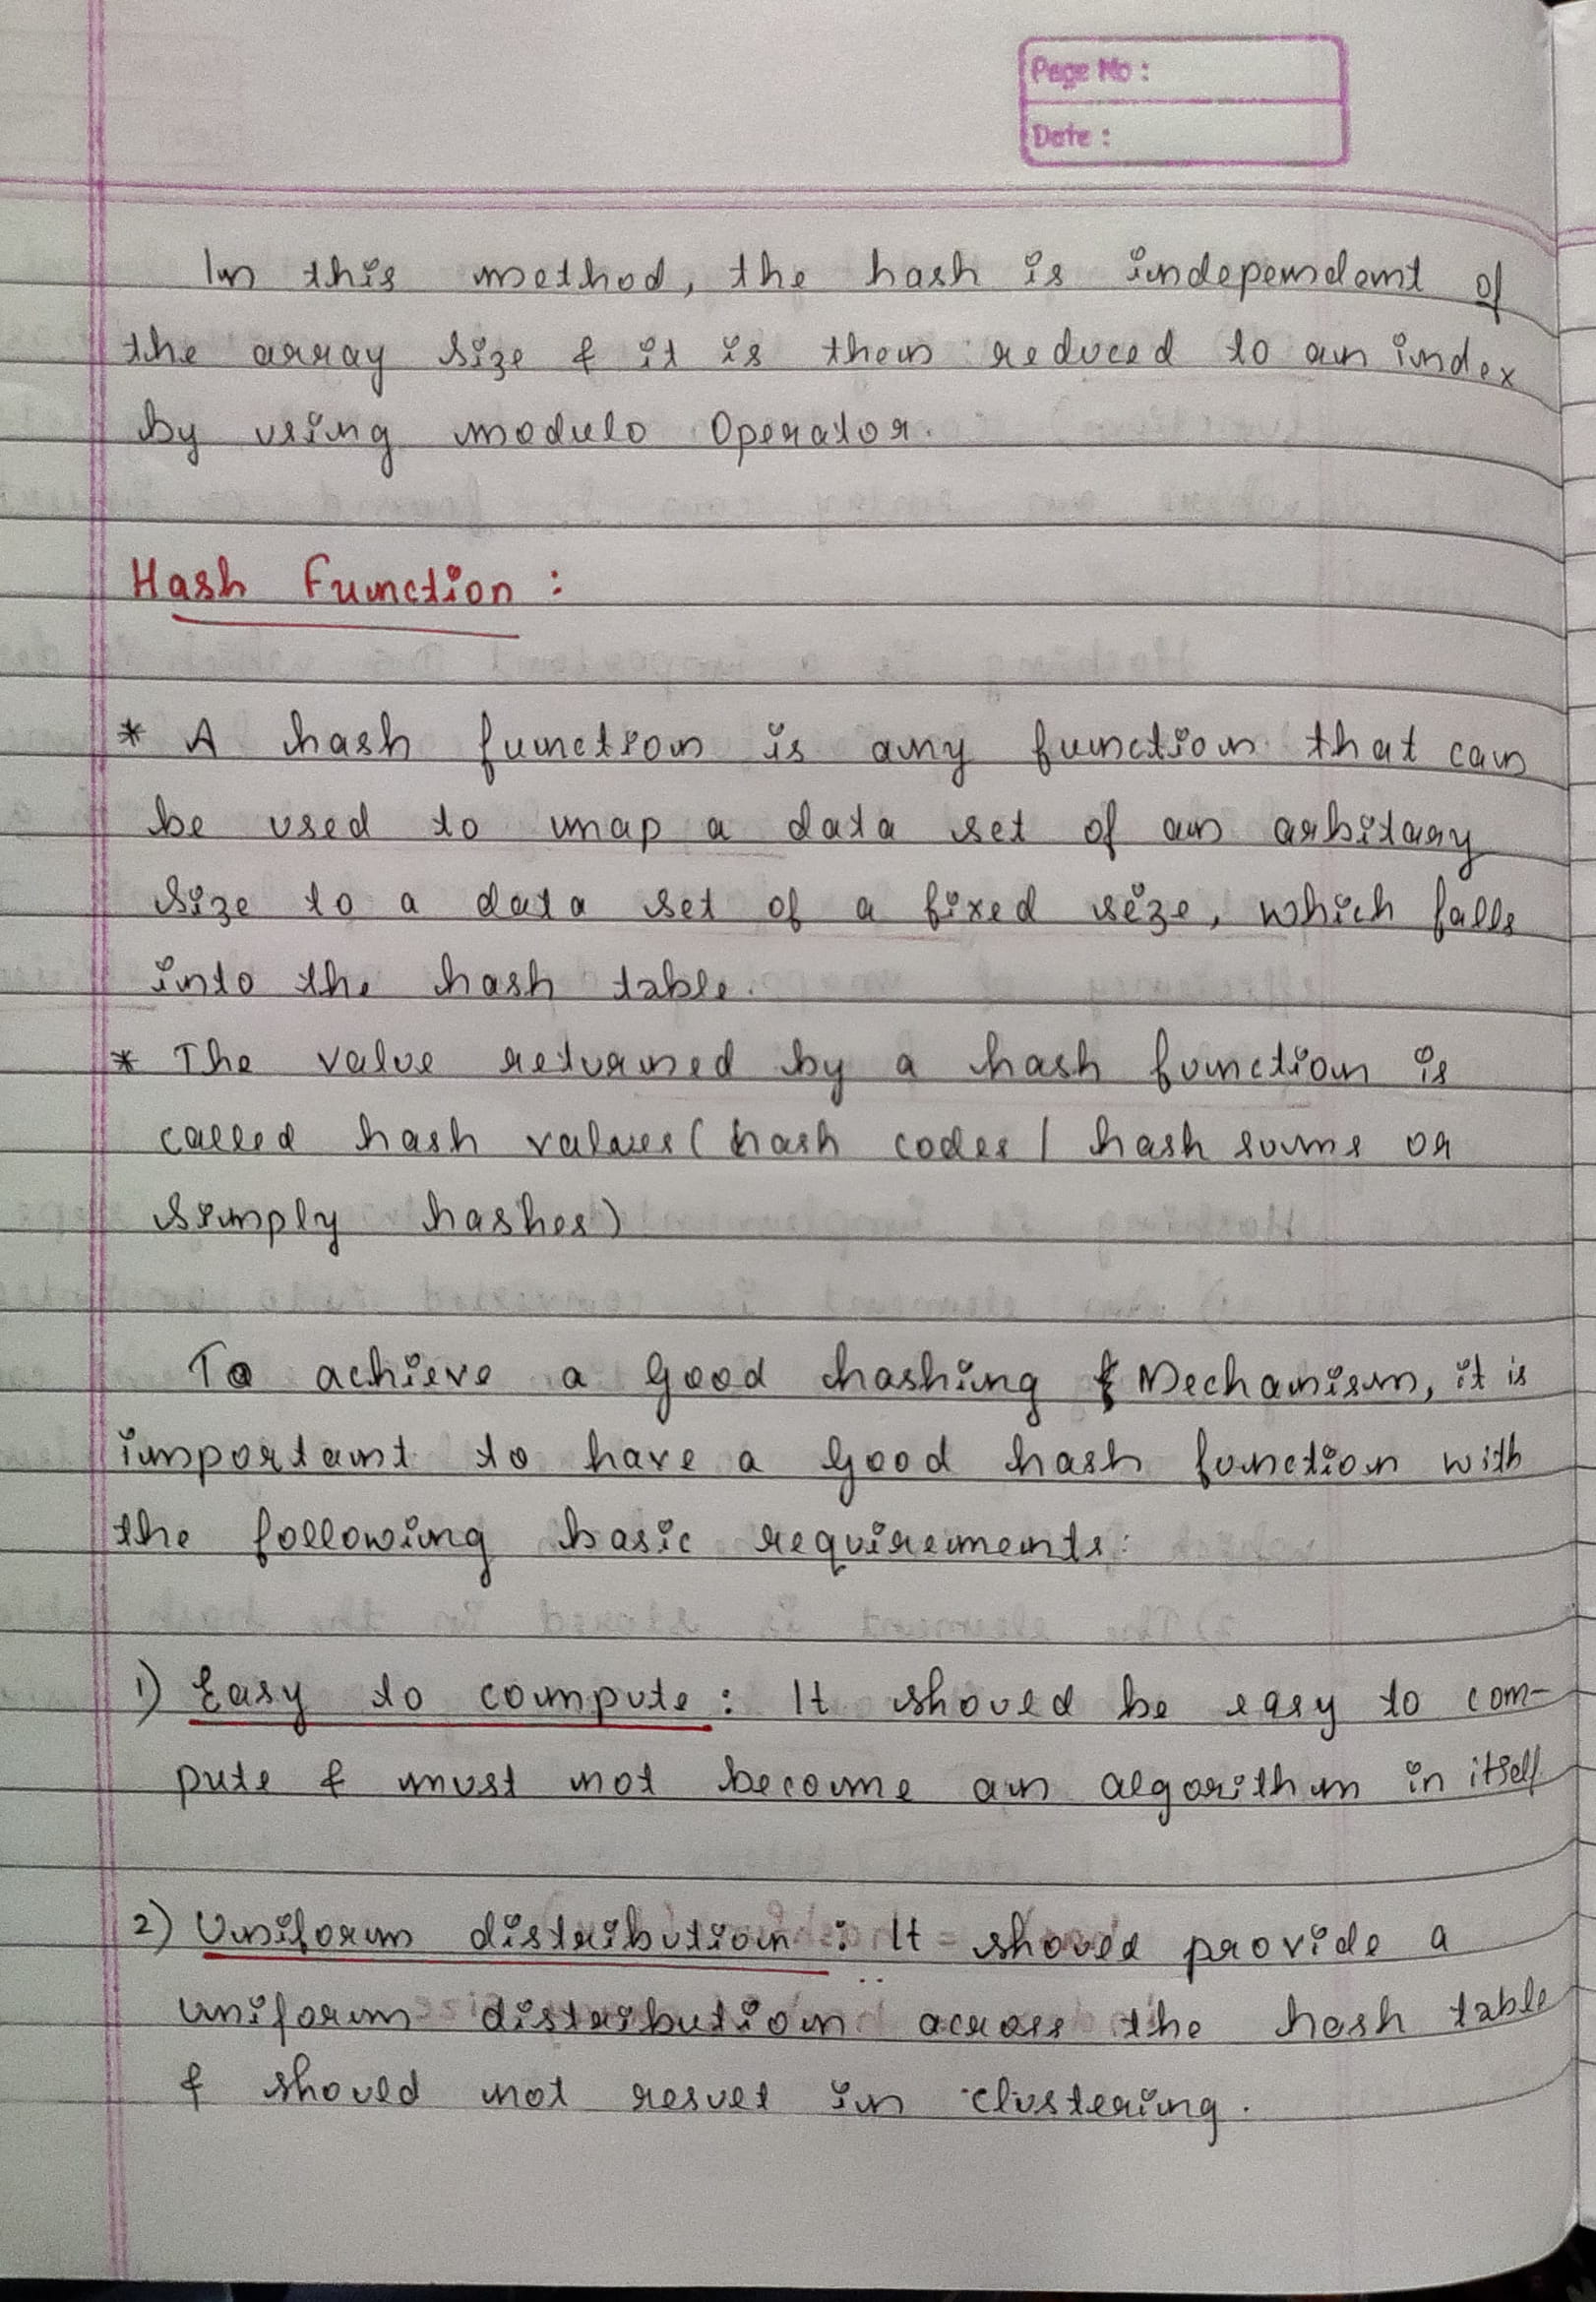 Page No :
Date :
In this method, the hash is independent of
the array size & it is then reduced to an index
by using modulo Operator.
Hash Function :
* A hash function is any function that can
be used to map a data set of an arbitary
size to a data set of a fixed size, which falls
into the hash table.
* The value returned by a hash function is
called hash values ( hash codes / hash sums or
simply hashes )
To achieve a good hashing Mechanism, it is
important to have a good hash function with
the following basic requirements:
1) Easy to compute : It should be easy to com-
pute & must not become an algorithm in itself.
2) Uniform distribution : It should provide a
uniform distribution across the hash table
& should not result in clustering.